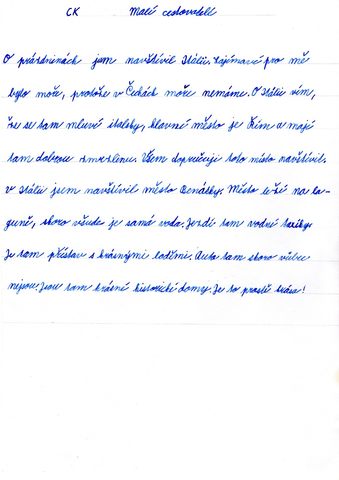 ČK Malí cestovatelé
O prázdninách jsem navštívil Itálii. Zajímavé pro mě
bylo moře, protože v Čechách moře nemáme. O Itálii vím,
že se tam mluví italsky, hlavní město je Řím a mají
tam dobrou zmrzlinu. Všem doporučuji toto místo navštívit.
V Itálii jsem navštívil město Benátky. Město leží na la-
guně, skoro všude je samá voda. Jezdí tam vodní taxíky.
Je tam přístav s krásnými loděmi. Auta tam skoro vůbec
nejsou. Jsou tam krásné historické domy. Je to prostě krása!